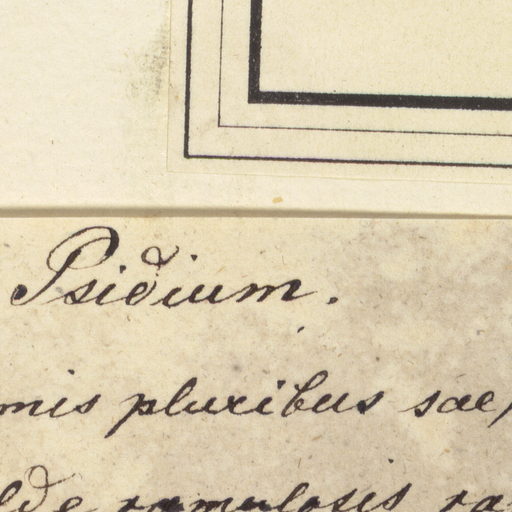 Psidium.
mis pluribus sae
lde ramulosis ra